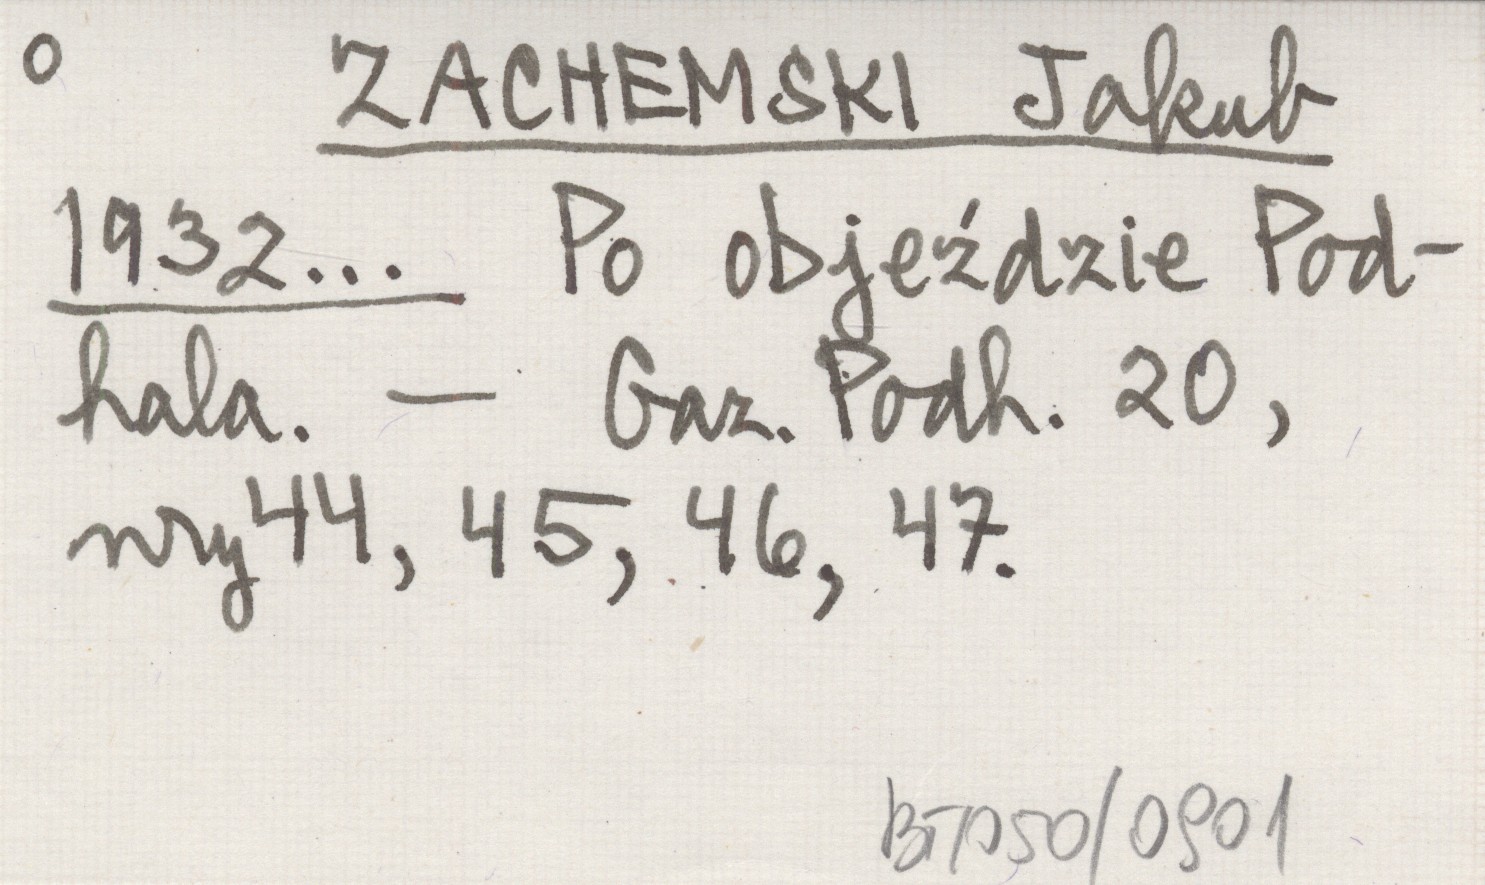 o ZACHEMSKI Jakub
1932... Po objeździe Pod-
hala. — Gaz. Podh. 20,
nry 44, 45, 46, 47.